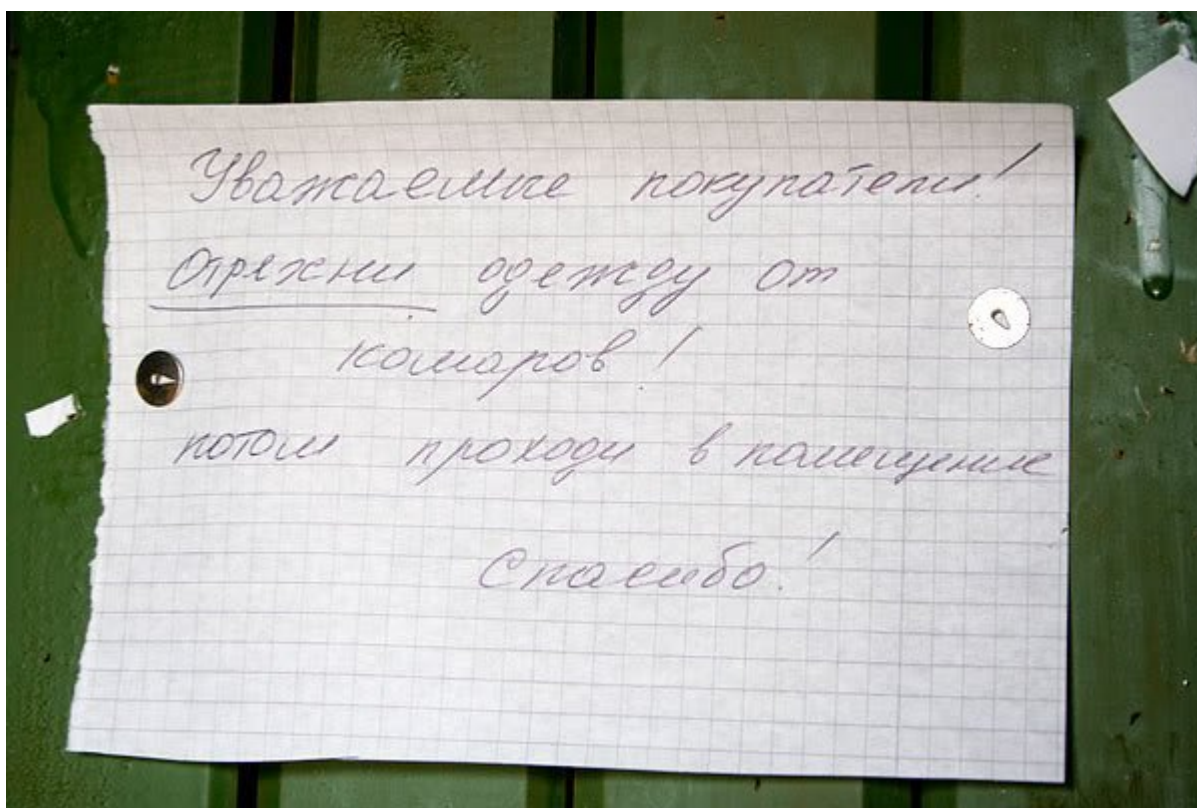 Уважаемые покупатели!
Отряхни одежду от
комаров!
потом проходи в помещение
Спасибо!